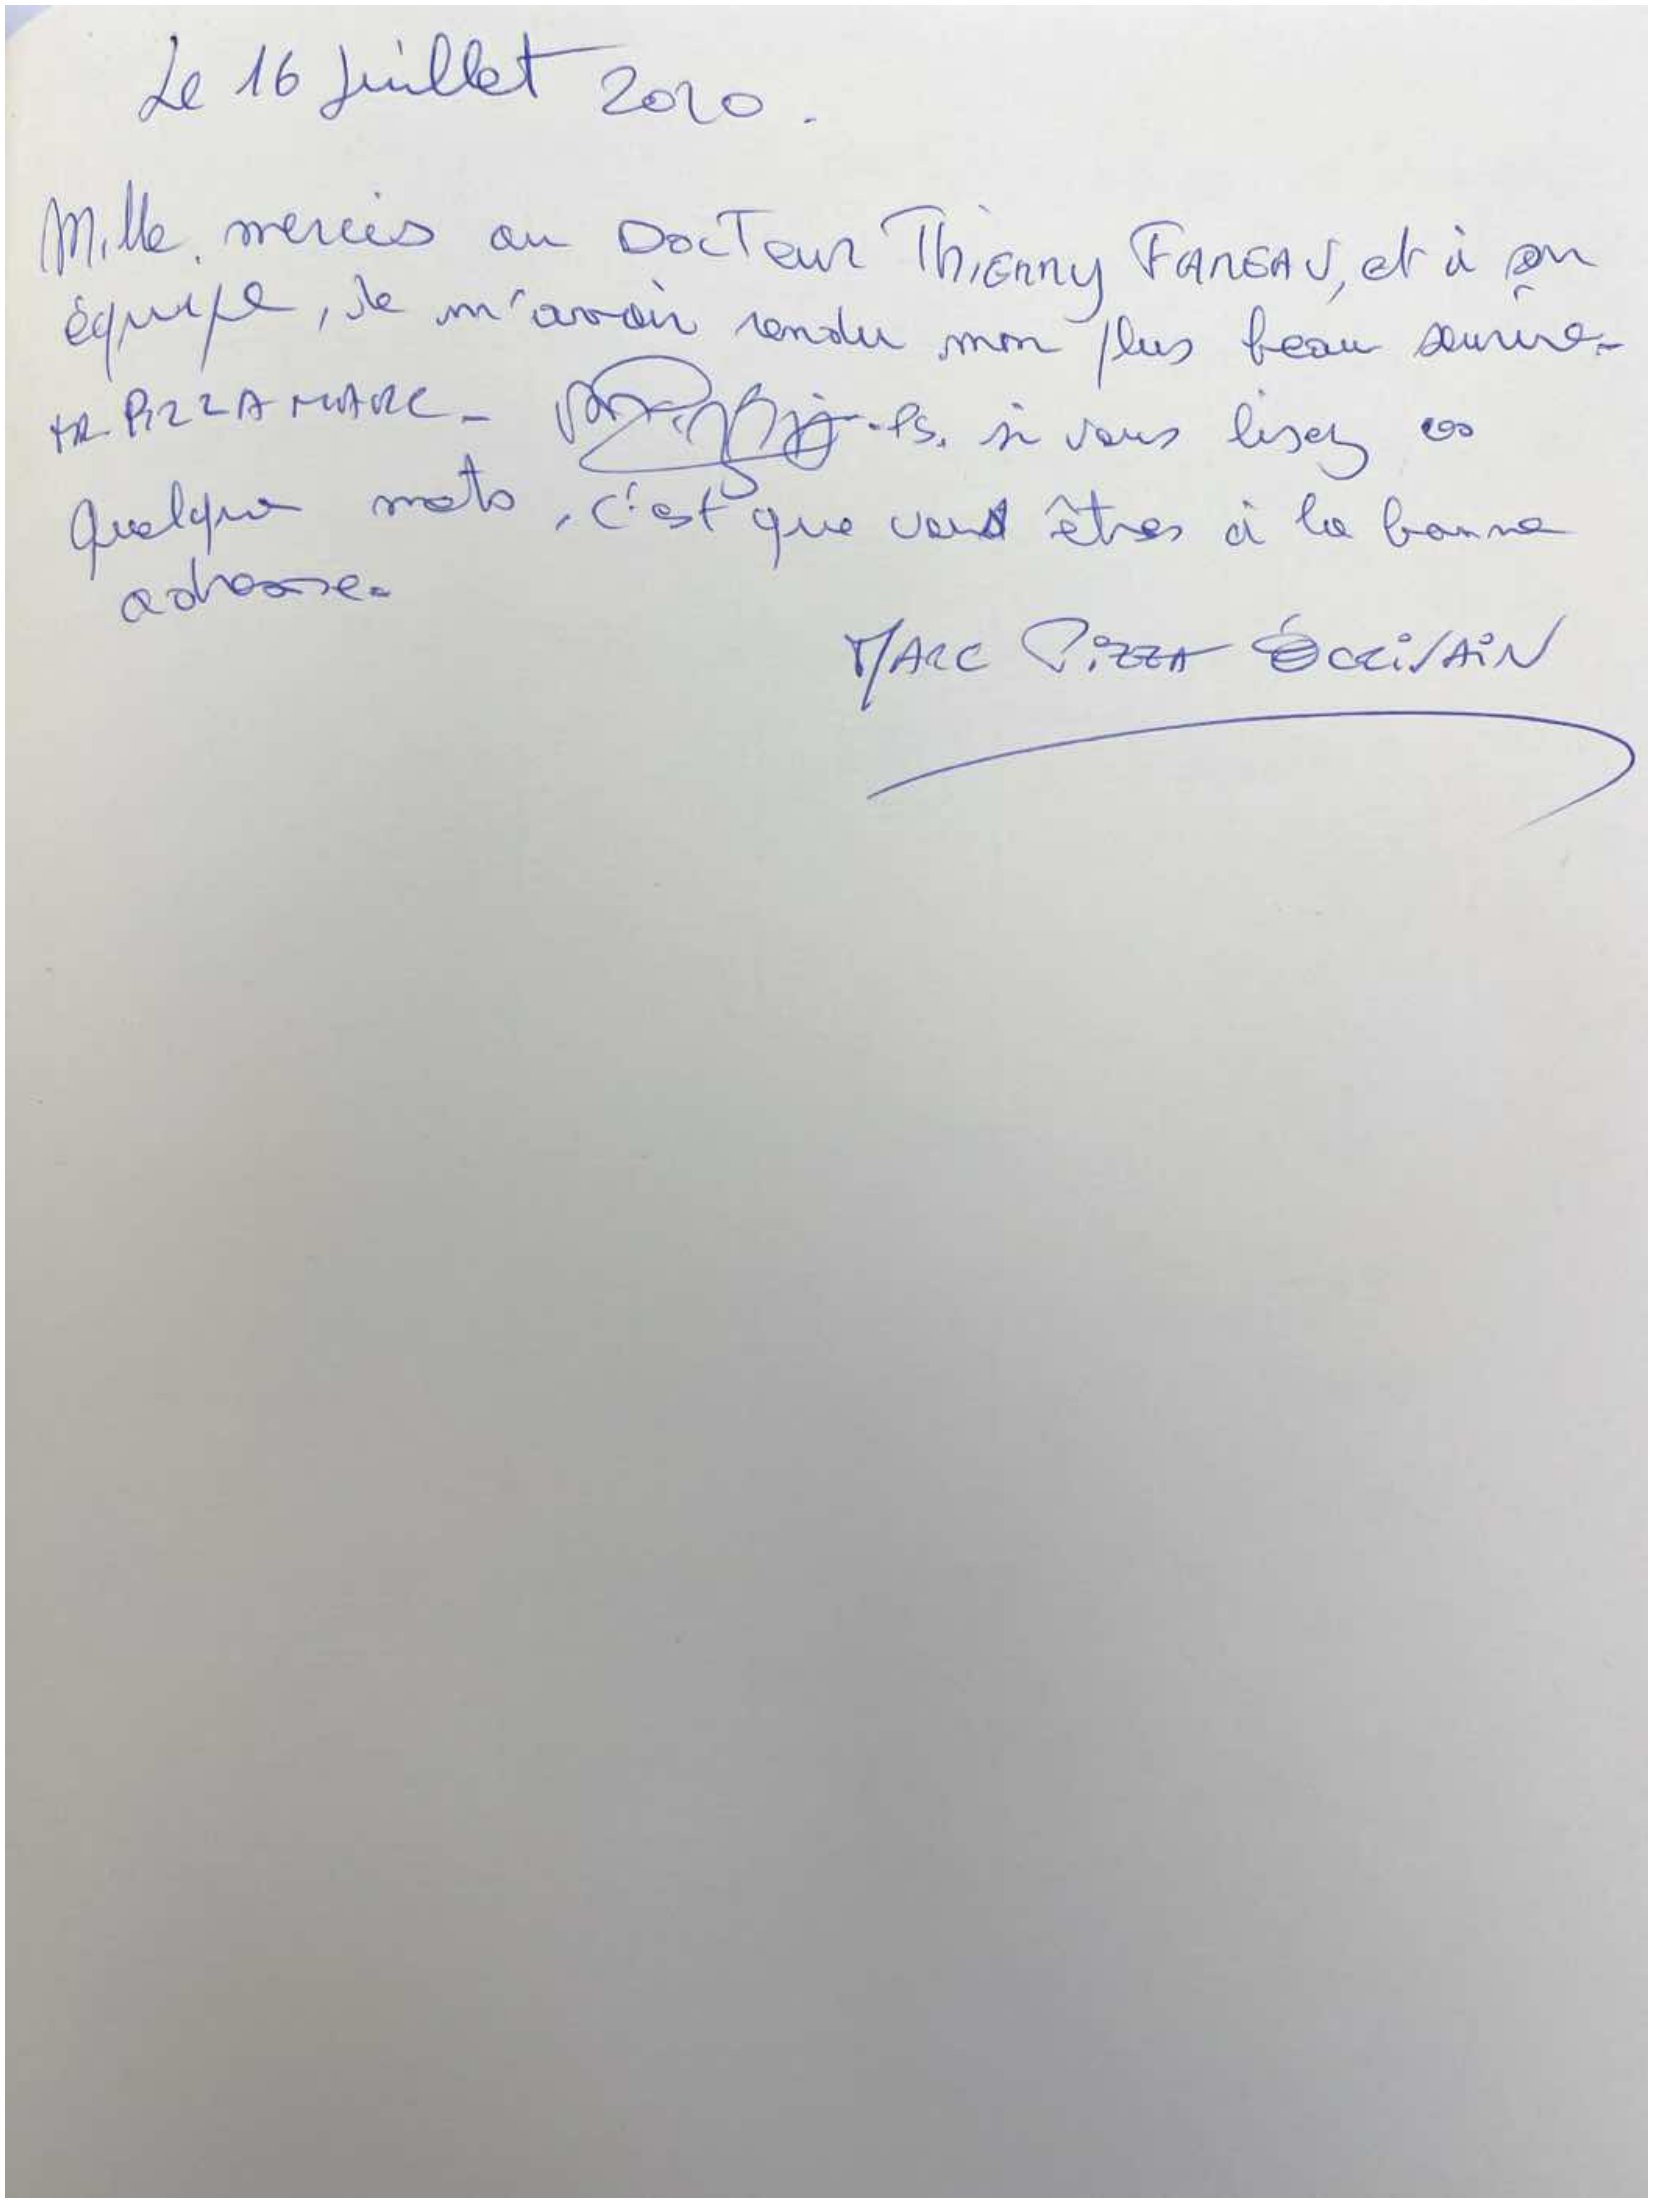 Le 16 Juillet 2020.
Mille mercis au DocTeur Thierry FAREAU, et à son
équipe, de m'avoir rendu mon plus beau sourire.
MR PIZZA MARC - PS. si vous lisez ces
Quelque mots, c'est que vous êtes à la bonne
adresse.
MARC PIZZA ÉCRIVAIN